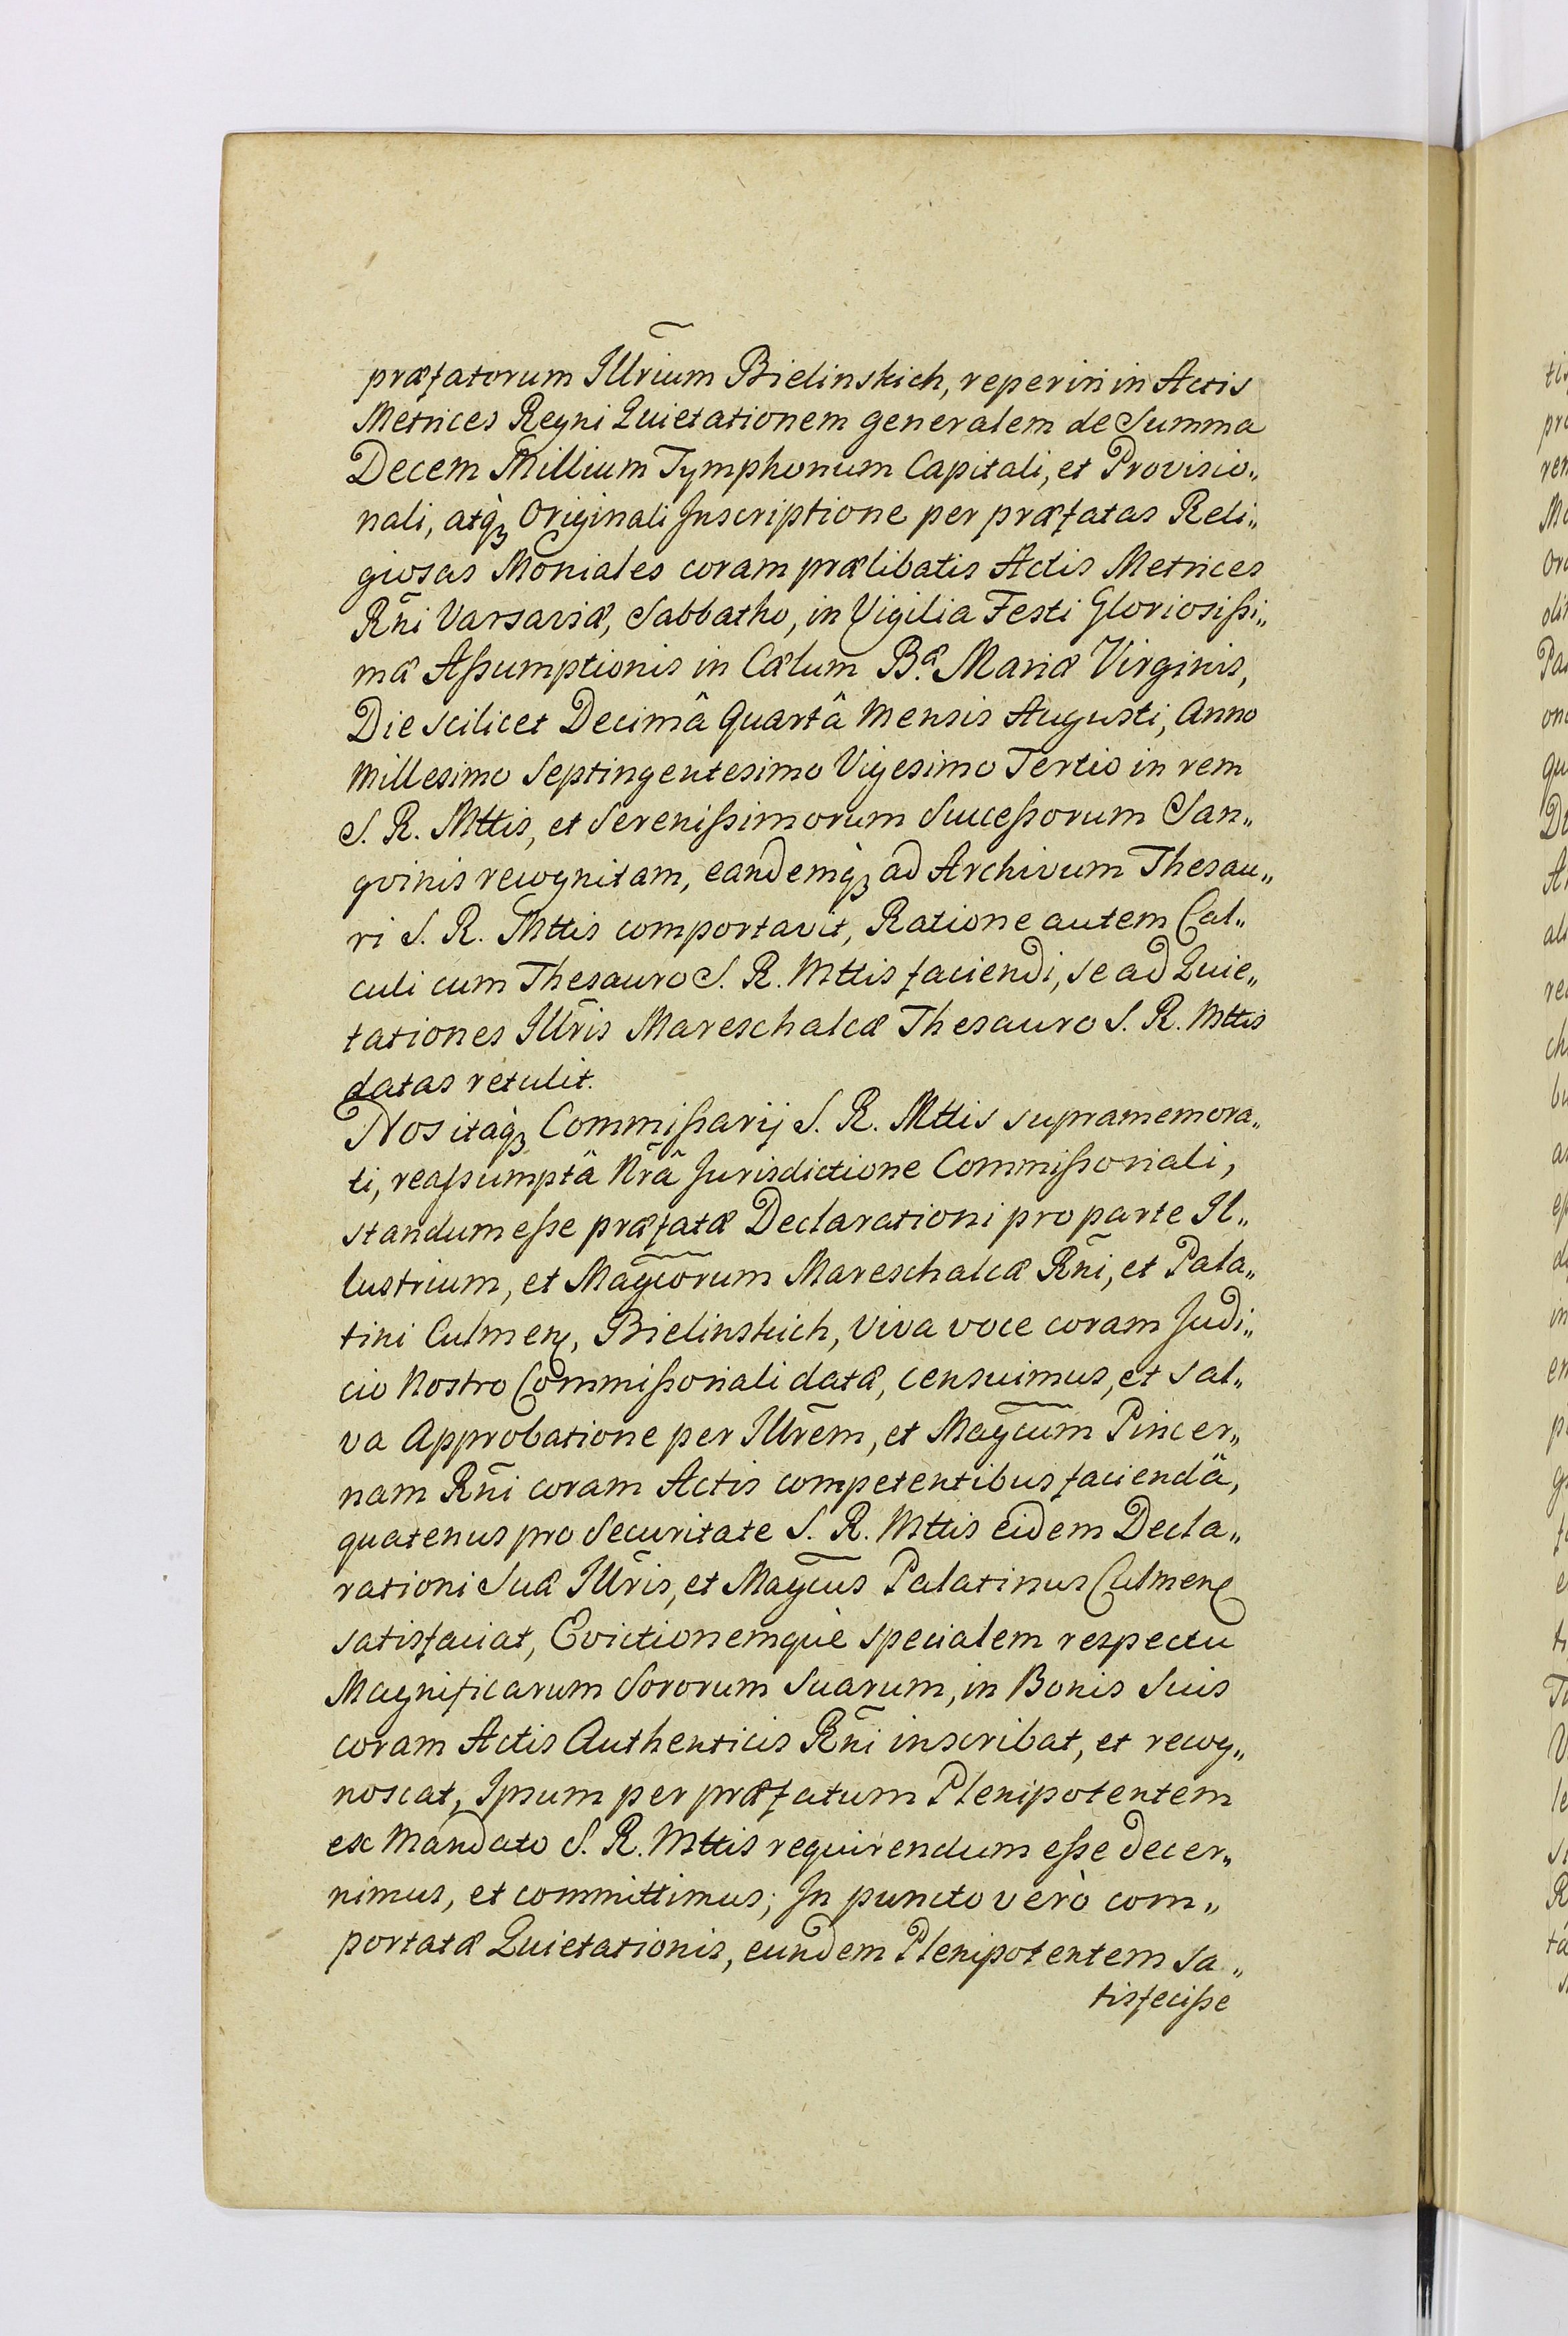 præfatorum Illr̃ium Bielinskich, reperiri in Actis
Metrices Regni Quietationem generalem de Summa
Decem Millium Tymphonum Capitali, et Provisio„
nali, atq̀ꝫ Originali Inscriptione per præfatas Reli„
giosas Moniales coram prælibatis Actis Metrices
Rñi Varsaviæ, Sabbatho, in Vigilia Festi Gloriosiſsi„
mæ Aſsumptionis in Cælum B.æ Mariæ Virginis,
Die scilicet Decimâ Quartâ Mensis Augusti, Anno
Millesimo Septingentesimo Vigesimo Tertio in rem
S. R. Mttis, et Sereniſsimorum Succeſsorum San„
gvinis recognitam, eandemqꝫ ad Archivum Thesau„
ri S. R. Mttis comportavit, Ratione autem Cal„
culi cum Thesauro S. R. Mttis faciendi, se ad Quie„
tationes Illr̃is Mareschalcæ Thesauro S. R. Mttis
datas retulit.
Nos itaq̀ꝫ Commiſsarij S. R. Mttis supramemora„
ti, reaſsumptâ Nr̃â Jurisdictione Commiſsoriali,
standum eſse præfatæ Declarationi pro parte Il„
lustrium, et Magc̃orum Mareschalcæ Rñi, et Pala„
tini Culmen, Bielinskich, viva voce coram Judi„
cio Nostro Commiſsoriali datæ, censuimus, et sal„
va Approbatione per Illr̃em, et Magc̃um Pincer„
nam Rñi coram Actis competentibus faciendâ,
quatenus pro Securitate S. R. Mttis eidem Decla„
rationi Suæ Illr̃is, et Magc̃us Palatinus Culmen
satisfaciat, Evictionemquè specialem respectu
Magnificarum Sororum Suarum, in Bonis Suis
coram Actis Authenticis Rñi inscribat, et recog„
noscat, Ipsum per præfatum Plenipotentem
ex Mandato S. R. Mttis requirendum eſse decer„
nimus, et committimus; In puncto verò com„
portatæ Quietationis, eundem Plenipotentem sa„
tisfeciſse